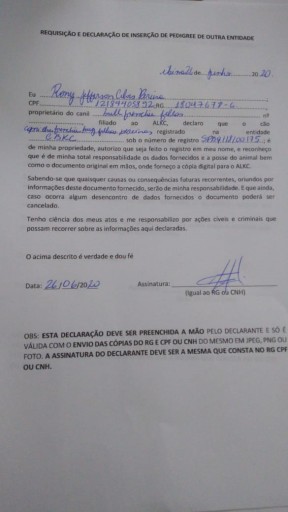 REQUISIÇÃO E DECLARAÇÃO DE INSERÇÃO DE PEDIGREE DE OUTRA ENTIDADE
de junho de 20 20
Eu Rony Jefferson
CPF RG
proprietário do canil nº
filiado ao ALKC, declaro que o cão
registrado na entidade
sob o número de registro e
de minha propriedade, autorizo que seja feito o registro em meu nome, e reconheço
que é de minha total responsabilidade os dados fornecidos e a posse do animal bem
como o documento original em mãos, onde forneço a cópia digital para o ALKC.
Sabendo-se que quaisquer causas ou consequências futuras recorrentes, oriundos por
informações deste documento fornecido, serão de minha responsabilidade. E que ainda,
caso ocorra algum desencontro de dados fornecidos o documento poderá ser
cancelado.
Tenho ciência dos meus atos e me responsabilizo por ações cíveis e criminais que
possam recorrer sobre as informações aqui declaradas.
O acima descrito é verdade e dou fé
Data: 26/06/2020 Assinatura:
(Igual ao RG ou CNH)
OBS: ESTA DECLARAÇÃO DEVE SER PREENCHIDA A MÃO PELO DECLARANTE E SÓ É
VÁLIDA COM O ENVIO DAS CÓPIAS DO RG E CPF OU CNH DO MESMO EM JPEG, PNG OU
FOTO. A ASSINATURA DO DECLARANTE DEVE SER A MESMA QUE CONSTA NO RG CPF
OU CNH.